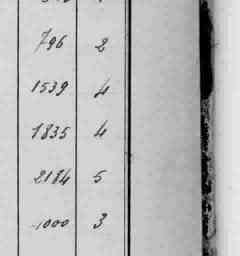 796 2
1539 4
1835 4
2184 5
1000 3